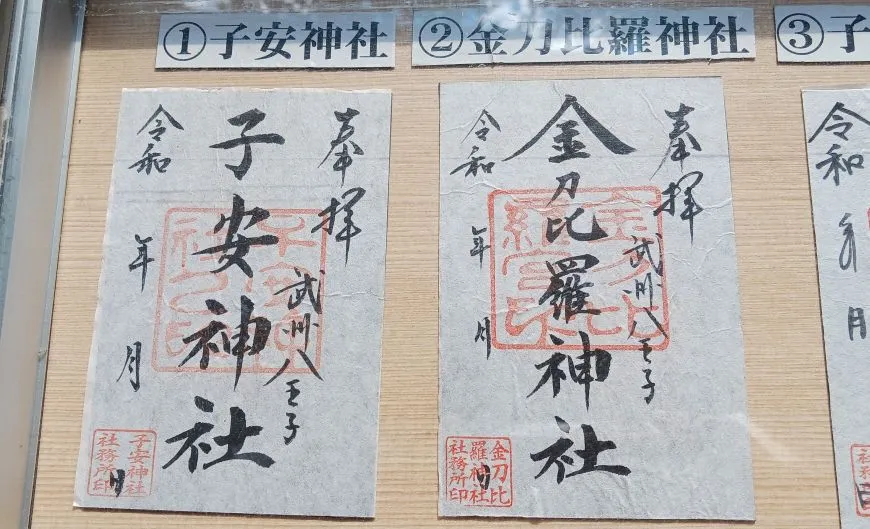 ①子安神社
②金刀比羅神社
③子
奉拝
武州八王子
子安神社
令和 年 月 日
子安神社
社務所印
奉拝
武州八王子
金刀比羅神社
令和 年 月 日
金刀比
羅神社
社務所印
令和 年 月 日